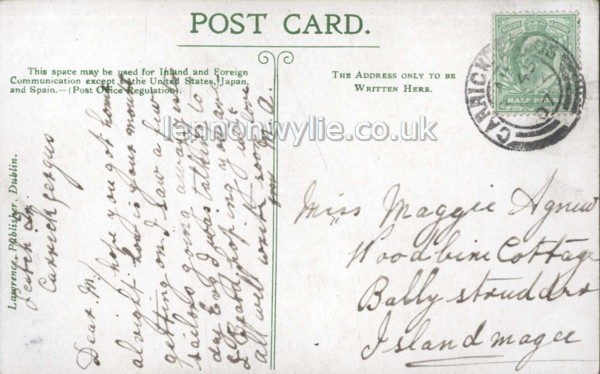 POST CARD.
This space may be used for Inland and Foreign
Communication except to the United States, Japan,
and Spain.—(Post Office Regulation).
The Address only to be
Written Here.
HALFPENNY
CARRICKFERGUS
lennonwylie.co.uk
Lawrence, Publisher, Dublin.
Carrickfergus
Dear M.
hope you got home
alright how is your mouth
getting on. I saw a few
sailors going away
day Evg I was talking to
all well write soon
from M. A.
Miss Maggie Agnew
Woodbine Cottage
Ballystrudder
Islandmagee